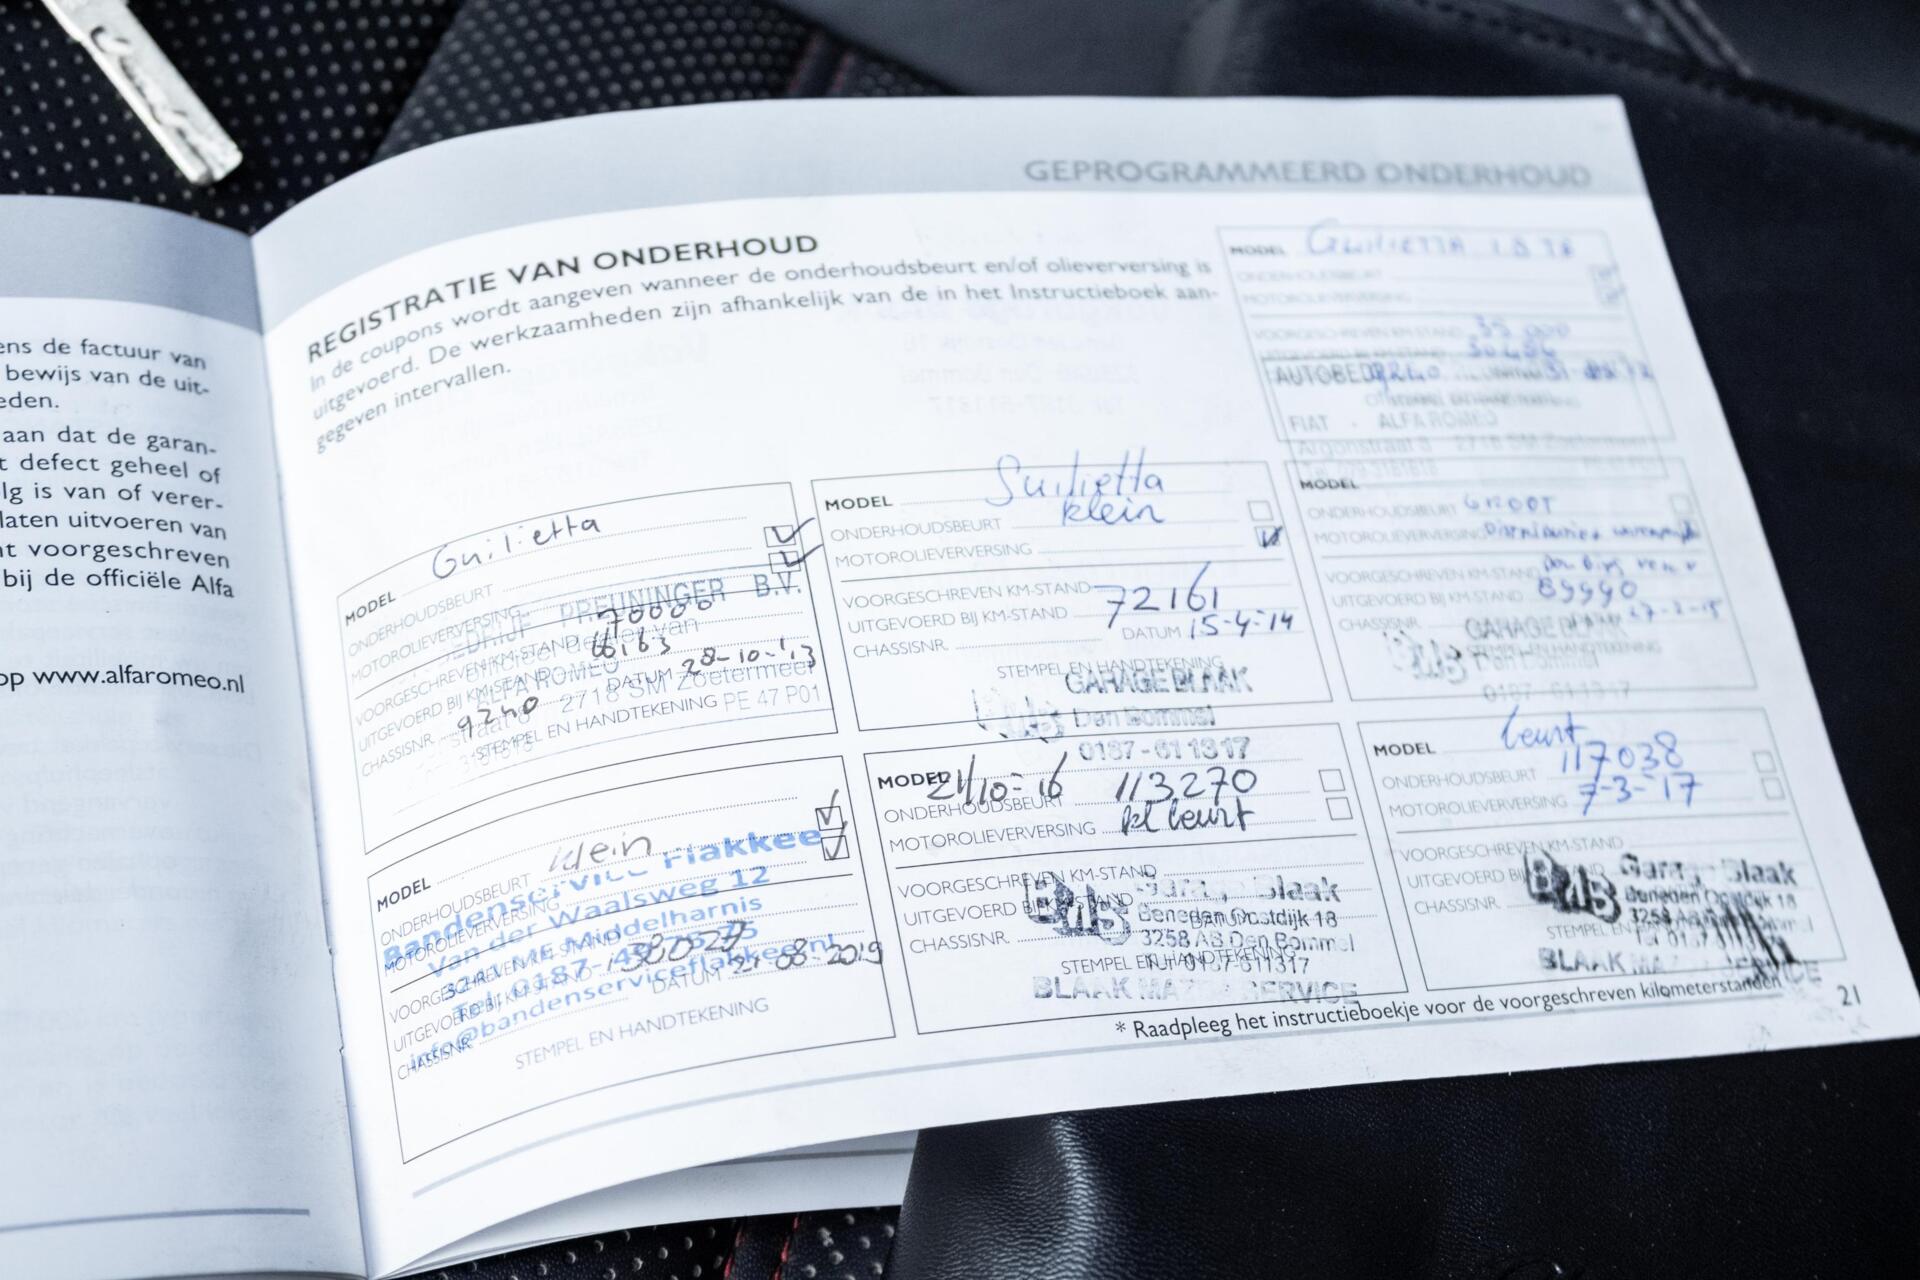 ens de factuur van
bewijs van de uit-
eden.
aan dat de garan-
t defect geheel of
lg is van of verer-
laten uitvoeren van
nt voorgeschreven
bij de officiële Alfa
op www.alfaromeo.nl
GEPROGRAMMEERD ONDERHOUD
REGISTRATIE VAN ONDERHOUD
In de coupons wordt aangeven wanneer de onderhoudsbeurt en/of olieverversing is
uitgevoerd. De werkzaamheden zijn afhankelijk van de in het Instructieboek aan-
gegeven intervallen.
MODEL GUILIETTA
ONDERHOUDSBEURT
MOTOROLIEVERVERSING
VOORGESCHREVEN KM-STAND
UITGEVOERD BIJ KM-STAND
FIAT · ALFA ROMEO
Argonstraat 8 2718 SM Zoetermeer
MODEL Guilietta
ONDERHOUDSBEURT
MOTOROLIEVERVERSING
PREUNINGER B.V.
VOORGESCHREVEN KM-STAND 70000
UITGEVOERD BIJ KM-STAND 66163
ALFA ROMEO
DATUM 28-10-'13
CHASSISNR. 9240
2718 SM Zoetermeer
STEMPEL EN HANDTEKENING PE 47 P01
MODEL Guilietta
klein
ONDERHOUDSBEURT
MOTOROLIEVERVERSING
VOORGESCHREVEN KM-STAND
UITGEVOERD BIJ KM-STAND 72161
CHASSISNR. DATUM 15-4-14
STEMPEL EN HANDTEKENING
GARAGE BLAAK
Den Bommel
0187-611317
MODEL
ONDERHOUDSBEURT GROOT
MOTOROLIEVERVERSING
VOORGESCHREVEN KM-STAND
UITGEVOERD BIJ KM-STAND 89990
CHASSISNR.
GARAGE BLAAK
Den Bommel
0187-611317
MODEL
ONDERHOUDSBEURT klein
MOTOROLIEVERVERSING
Bandenservice Flakkee
Van der Waalsweg 12
Middelharnis
VOORGESCHREVEN KM-STAND
UITGEVOERD BIJ KM-STAND
DATUM 21-08-2019
info@bandenserviceflakkee.nl
CHASSISNR.
STEMPEL EN HANDTEKENING
MODEL 21/10-16 113270
ONDERHOUDSBEURT
MOTOROLIEVERVERSING kl beurt
VOORGESCHREVEN KM-STAND
UITGEVOERD BIJ KM-STAND
CHASSISNR.
Garage Blaak
Beneden Oostdijk 18
3258 AB Den Bommel
STEMPEL EN HANDTEKENING
Tel 0187-611317
BLAAK MAZDA SERVICE
MODEL beurt
ONDERHOUDSBEURT 117038
MOTOROLIEVERVERSING 7-3-'17
VOORGESCHREVEN KM-STAND
UITGEVOERD BIJ KM-STAND
CHASSISNR.
Garage Blaak
Beneden Oostdijk 18
3258 AB Den Bommel
Tel 0187-611317
BLAAK MAZDA SERVICE
* Raadpleeg het instructieboekje voor de voorgeschreven kilometerstanden
21